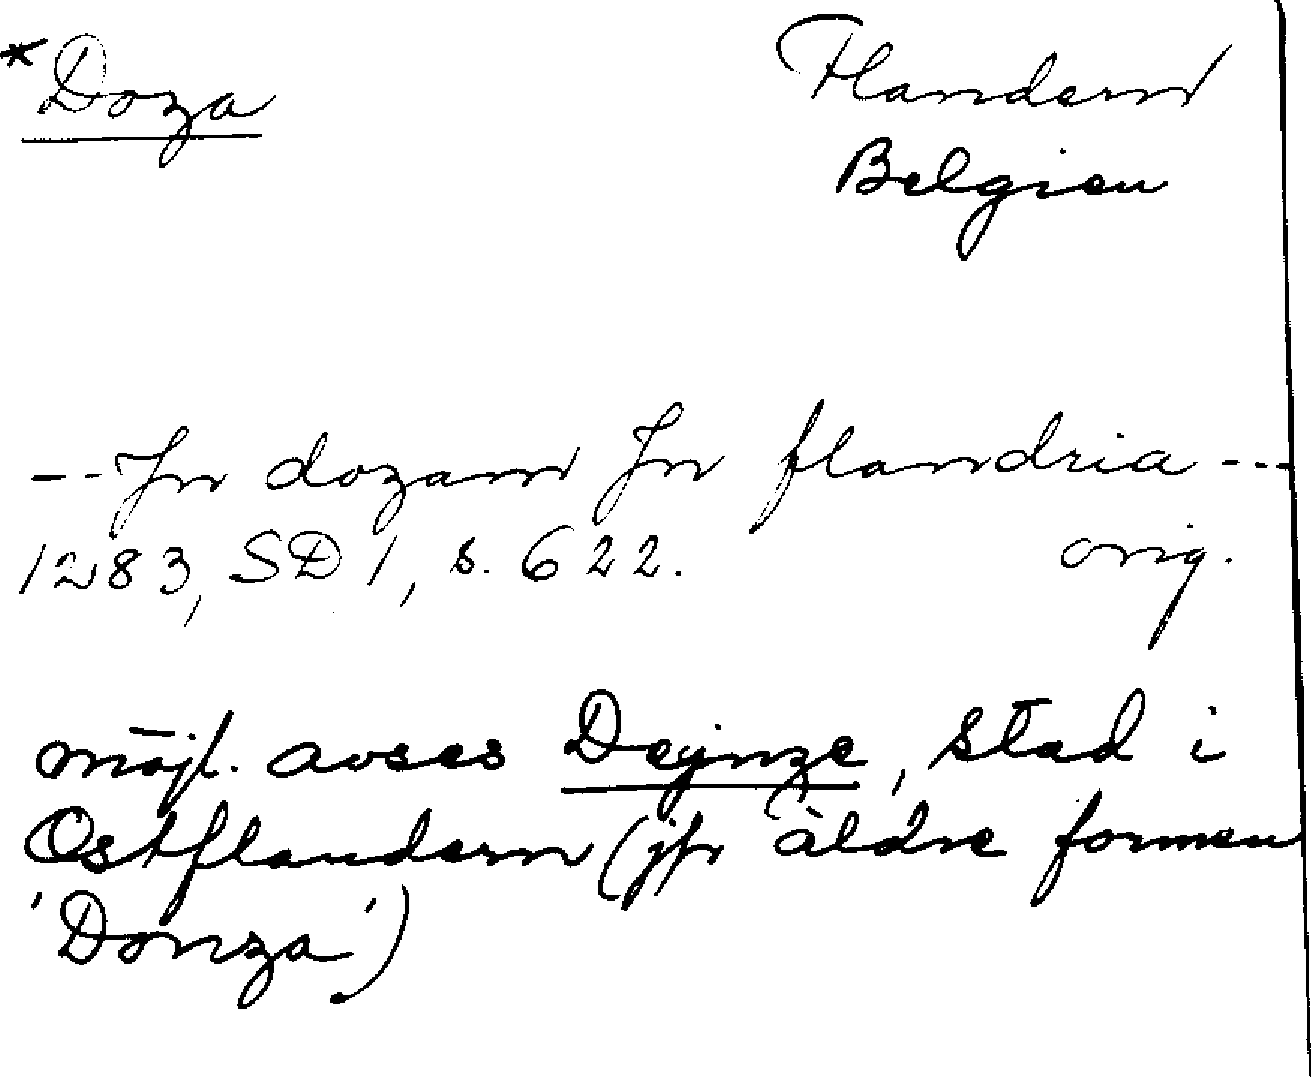 *Doza
Flandern
Belgien
-- Jn dozam Jn flandria ---
1283, SD 1, s. 622. orig.
möjl. avses Dejnze, stad i
Ostflandern (jfr äldre formen
'Donza')